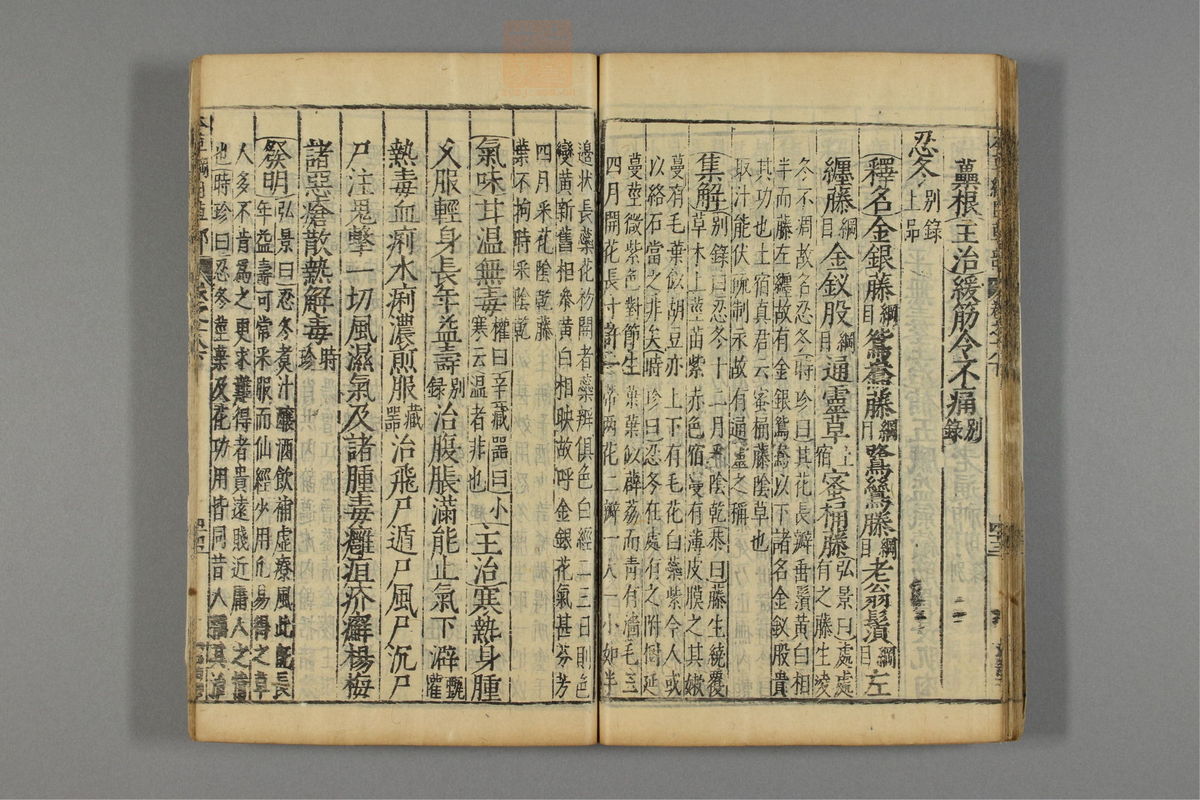 虆根主治緩筋令不痛別錄
忍冬別錄上品
釋名金銀藤綱目鴛鴦藤綱目鷺鷥藤綱目老翁鬚綱目左
纏藤綱目金釵股綱目通靈草土宿蜜桶藤弘景曰處處有之藤生凌
冬不凋故名忍冬時珍曰其花長瓣垂鬚黃白相
半而藤左纏故有金銀鴛鴦以下諸名金釵股貴
其功也土宿真君云蜜桶藤陰草也
取汁能伏硫制永故有通靈之稱
集解別錄曰忍冬十二月采陰乾恭曰藤生繞覆
草木上莖苗紫赤色宿蔓有薄皮膜之其嫩
蔓有毛葉似胡豆亦上下有毛花白蘂紫今人或
以絡石當之非矣時珍曰忍冬在處有之附樹延
蔓莖微紫色對節生葉葉似薜荔而青有澀毛三
四月開花長寸許一蒂兩花二瓣一大一小如半
邊狀長蘂花初開者蘂瓣俱色白經二三日則色
變黃新舊相參黃白相映故呼金銀花氣甚芬芳
四月采花陰乾藤
葉不拘時采陰乾
氣味甘温無毒權曰辛藏器曰小寒云温者非也主治寒熱身腫
久服輕身長年益壽別錄治腹脹滿能止氣下澼甄權
熱毒血痢水痢濃煎服藏器治飛尸遁尸風尸沉尸
尸注鬼擊一切風濕氣及諸腫毒癰疽疥癬楊梅
諸惡瘡散熱解毒時珍
發明弘景曰忍冬煮汁釀酒飲補虛療風此旣長
年益壽可常采服而仙經少用凡易得之草
人多不肯爲之更求難得者貴遠賤近庸人之情
也時珍曰忍冬莖葉及花功用皆同昔人稱其治